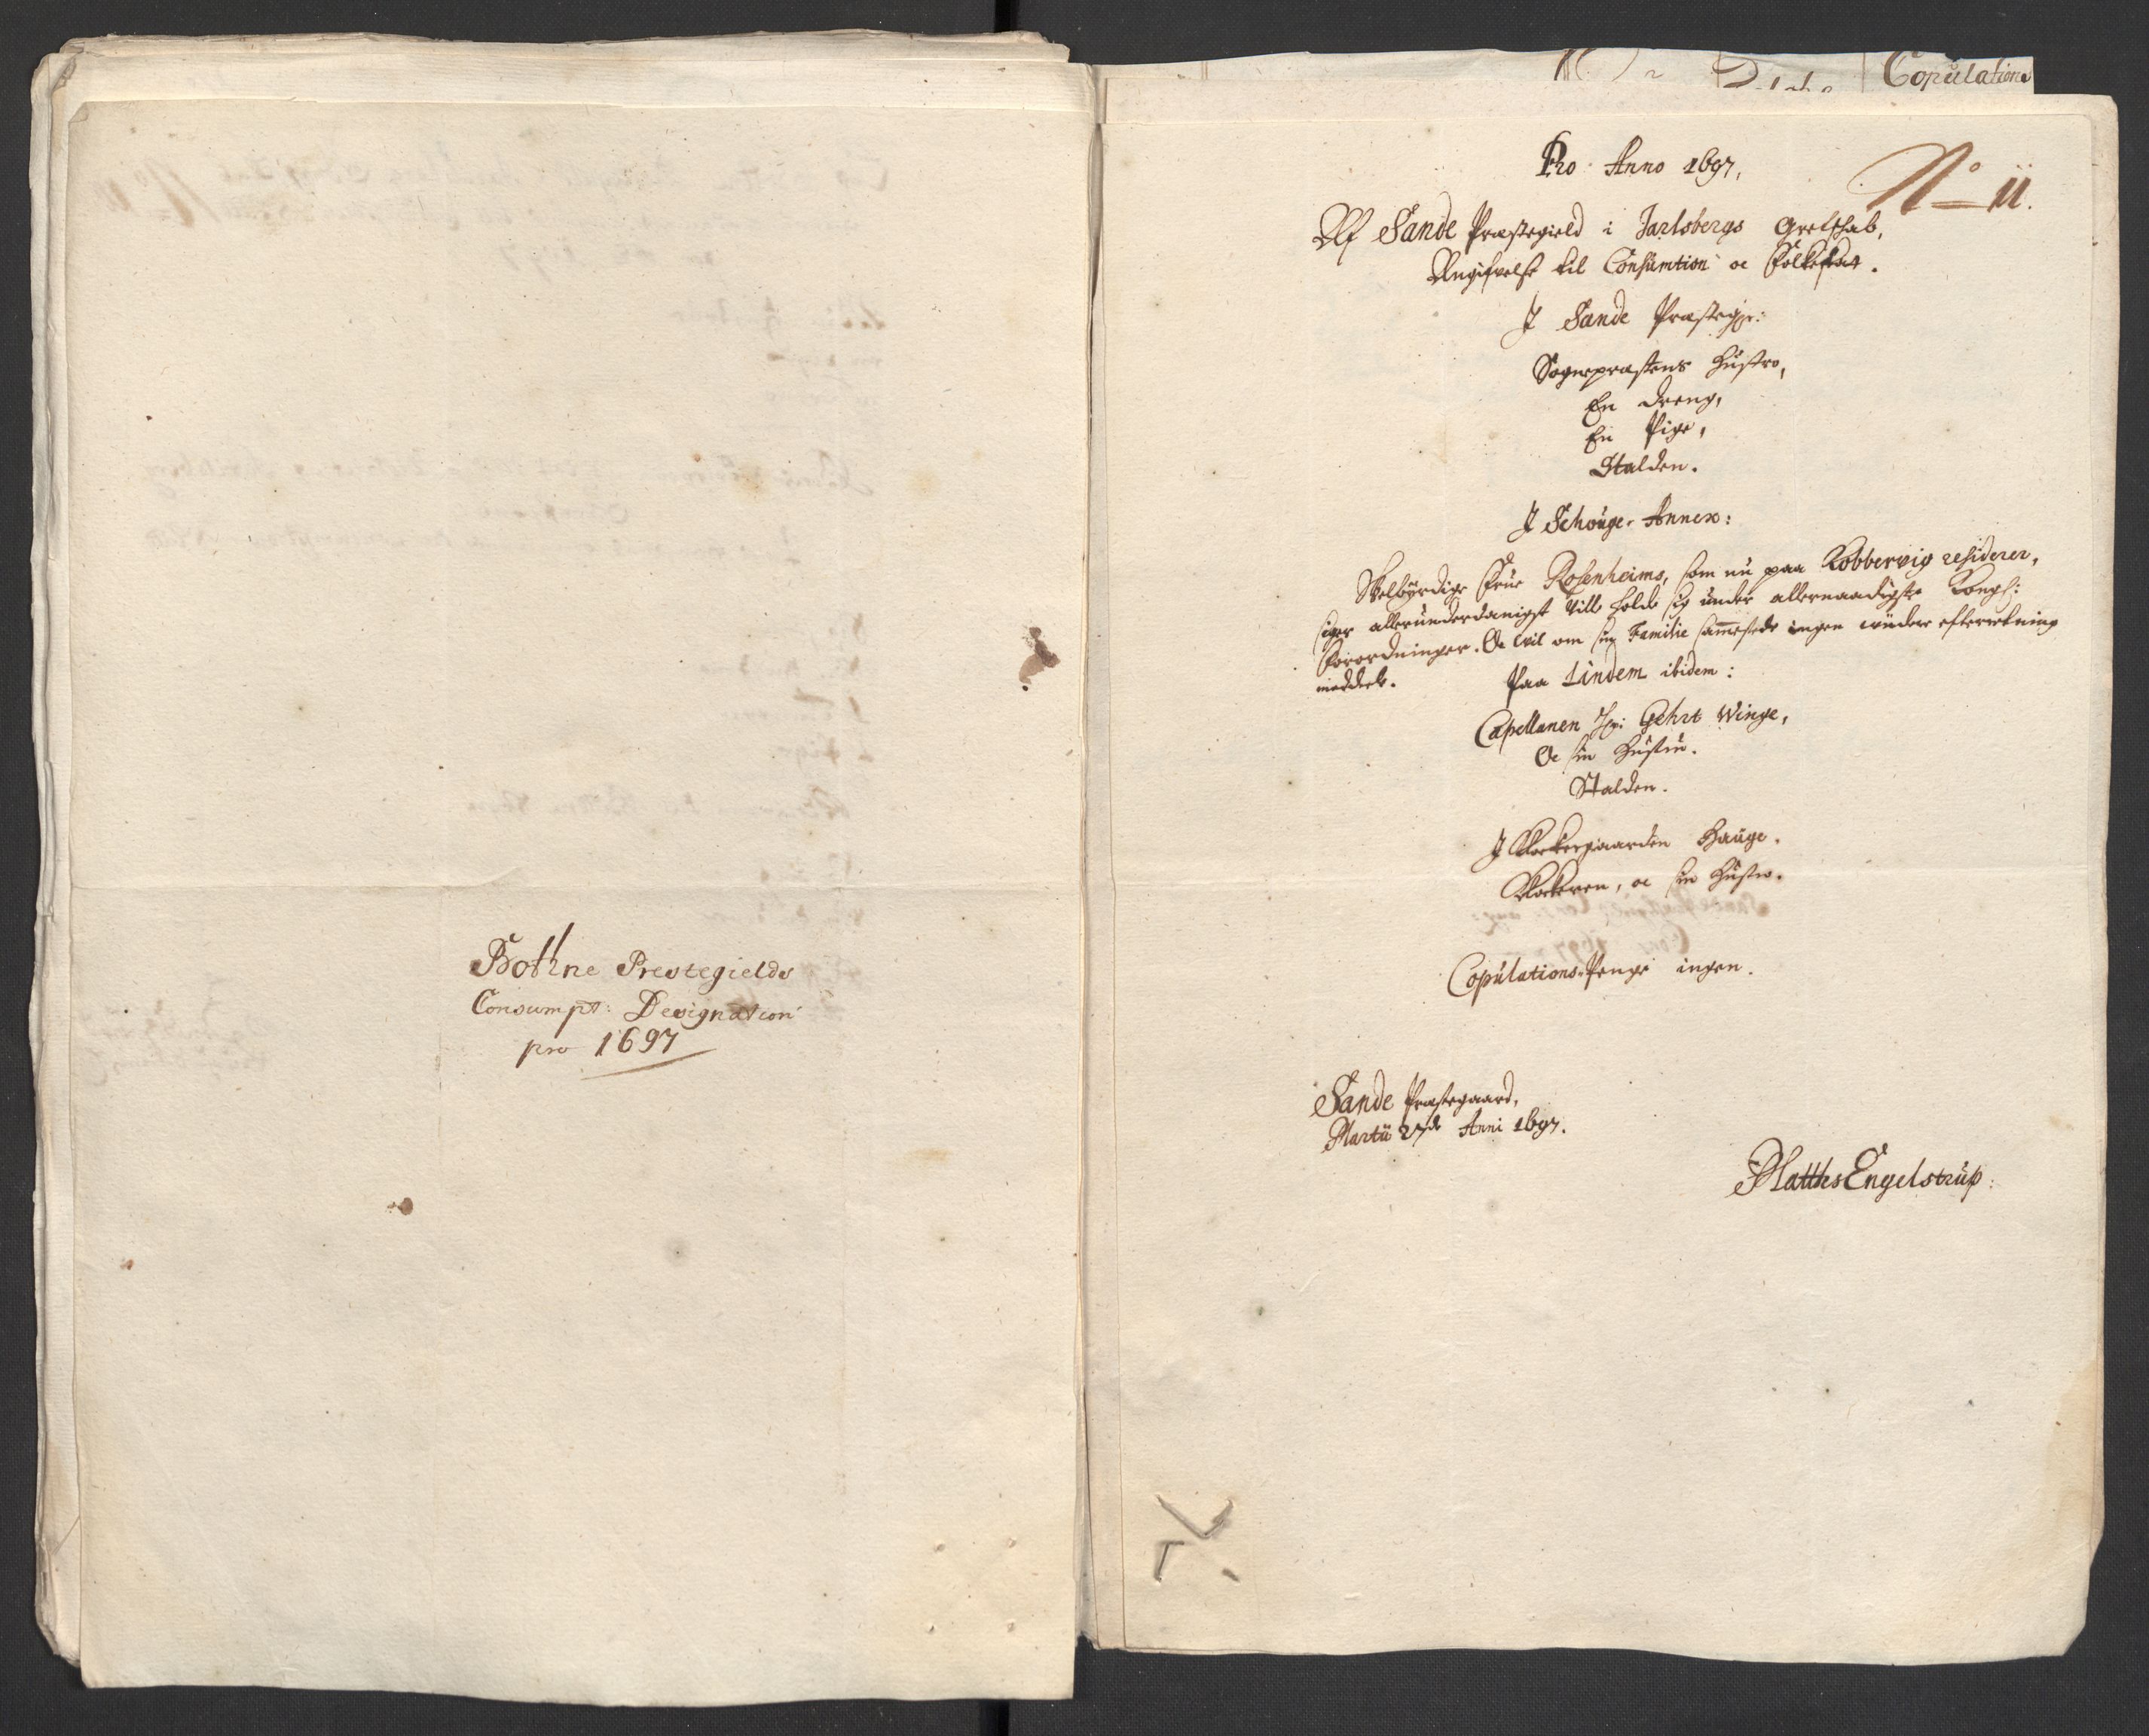 Bothne Prestegields
Consumpt: Designation
pro 1697
Copulations
Pro Anno 1697,
No 11.
Af Sande Præstegield i Jarlsbergs Grefschab,
Angifvelse til Consumtion oc Folkeskat.
I Sande Præstegr:
Sognepræstens Hustro,
En Dreng,
En Pige,
Stalden.
I Schouge-Annex:
Velbyrdige Frue Rosenheims, som nu paa Kobbervig residerer,
siger allerunderdanigst ville holde sig under allernaadigste Kongl:
Forordninger. Oc vil om sin Familie sammesteds ingen viidere efterretning
meddele.
Paa Lindem ibidem:
Capellanen Hr: Gehrt Winge,
Oc sin Hustru.
Stalden.
I Klockergaarden Hauge.
Klockeren, oc sin Hustro.
Copulations-Penge ingen.
Sande Præstegaard,
Martii 27de Anni 1697.
Matths Engelstrup: